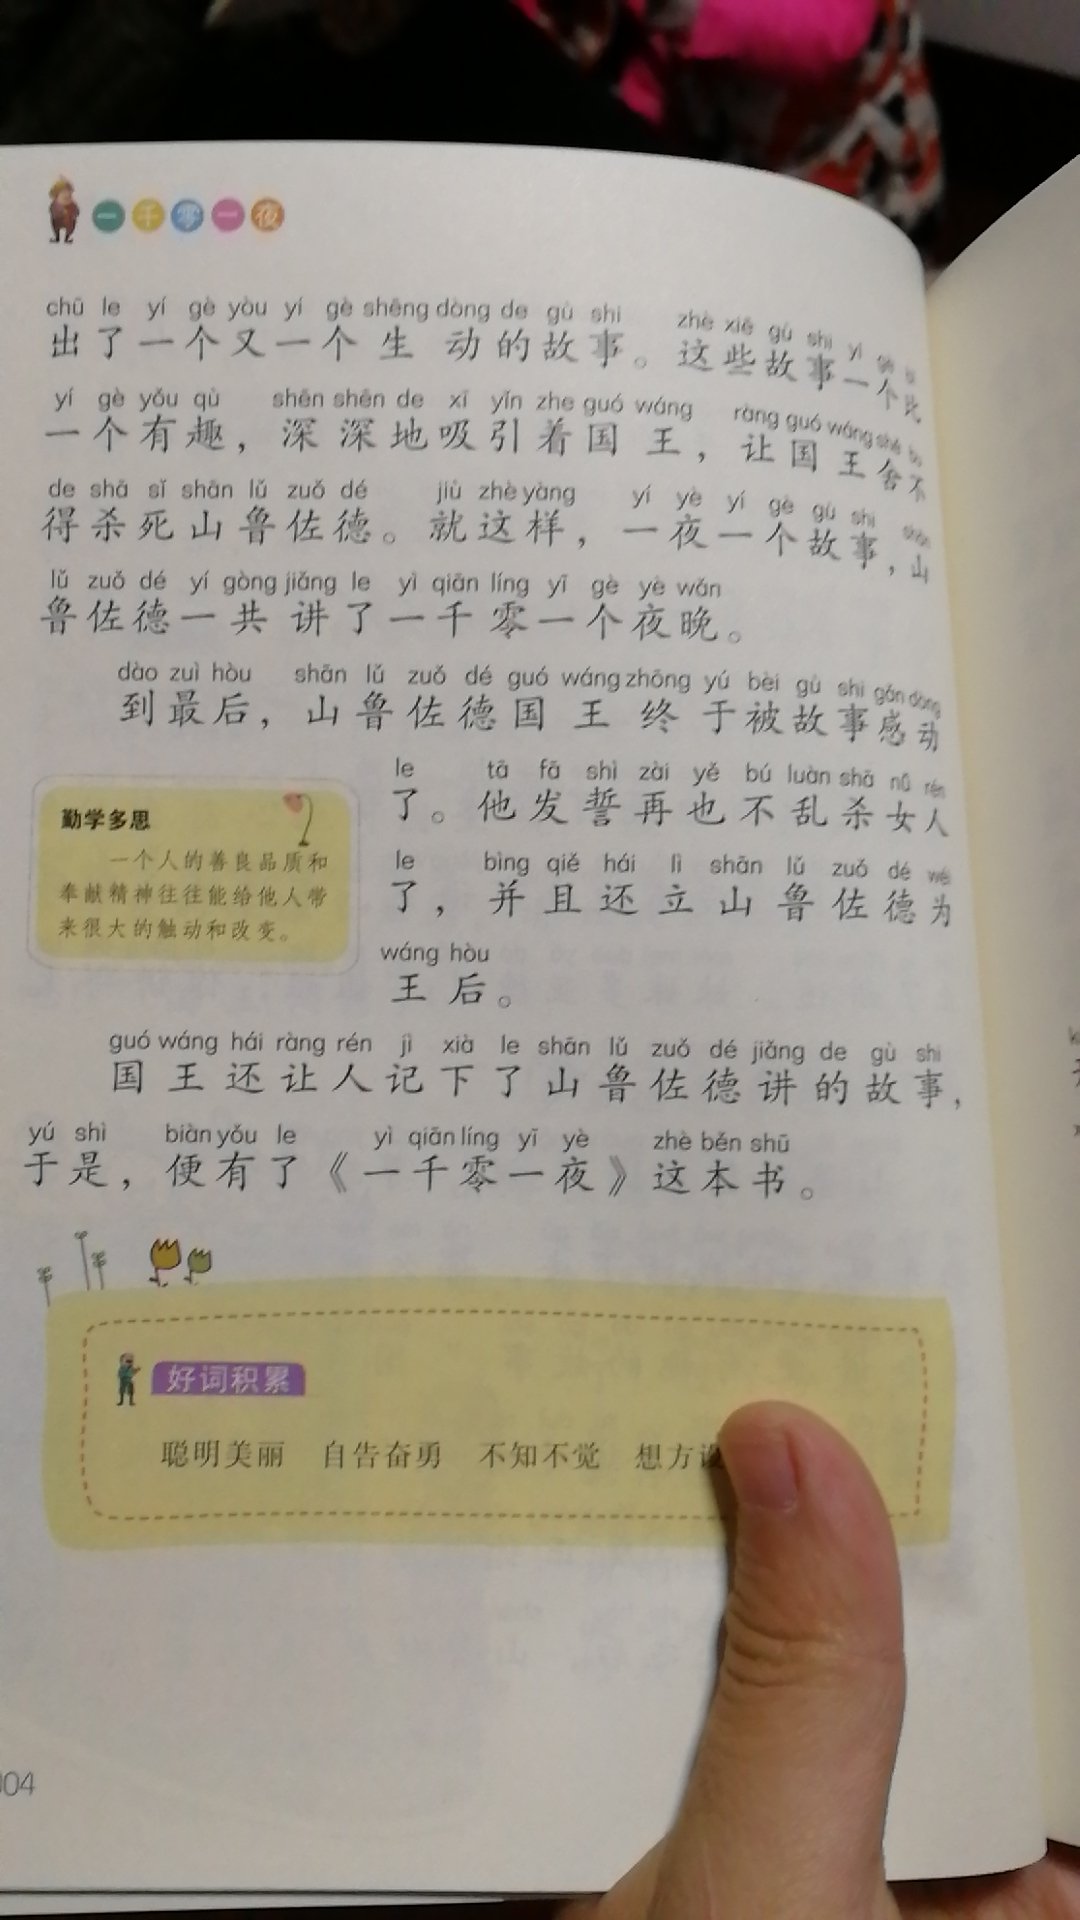 一千零一夜
chū le yí gè yòu yí gè shēng dòng de gù shi zhè xiē gù shi yí gè bǐ
出了一个又一个生动的故事。这些故事一个比
yí gè yǒu qù shēn shēn de xī yǐn zhe guó wáng ràng guó wáng shě bu
一个有趣，深深地吸引着国王，让国王舍不
de shā sǐ shān lǔ zuǒ dé jiù zhè yàng yí yè yí gè gù shi shān
得杀死山鲁佐德。就这样，一夜一个故事，山
lǔ zuǒ dé yí gòng jiǎng le yì qiān líng yī gè yè wǎn
鲁佐德一共讲了一千零一个夜晚。
dào zuì hòu shān lǔ zuǒ dé guó wáng zhōng yú bèi gù shi gǎn dòng
到最后，山鲁佐德国王终于被故事感动
le tā fā shì zài yě bú luàn shā nǚ rén
了。他发誓再也不乱杀女人
le bìng qiě hái lì shān lǔ zuǒ dé wéi
了，并且还立山鲁佐德为
wáng hòu
王后。
勤学多思
一个人的善良品质和
奉献精神往往能给他人带
来很大的触动和改变。
guó wáng hái ràng rén jì xià le shān lǔ zuǒ dé jiǎng de gù shi
国王还让人记下了山鲁佐德讲的故事，
yú shì biàn yǒu le yì qiān líng yī yè zhè běn shū
于是，便有了《一千零一夜》这本书。
好词积累
聪明美丽 自告奋勇 不知不觉 想方设
004